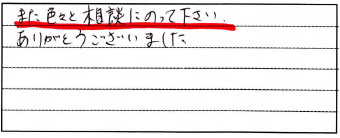 また色々と相談にのって下さい.
ありがとうございました